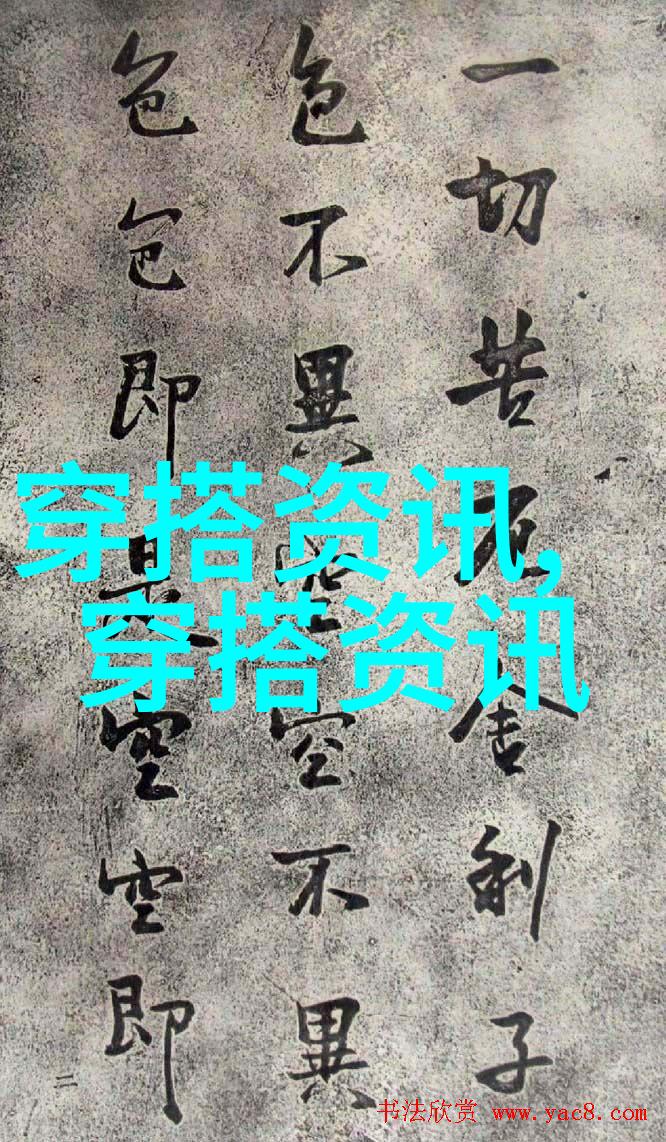 一切苦厄舍利子
色不異空空不異
色色即是空空即
二
穿搭资讯,
穿搭资讯
书法欣赏 www.yac8.com